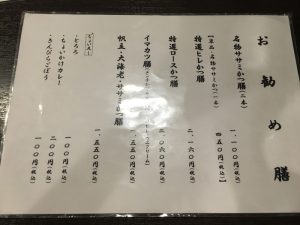 お勧め膳
名物ササミかつ膳(二本) 一、一〇〇円(税込)
【単品・名物ササミかつ(一本) 四五〇円(税込)】
特選ヒレかつ膳 二、一六〇円(税込)
特選ロースかつ膳 二、〇六〇円(税込)
イマカツ膳 一、五五〇円(税込)
帆立・大海老・ササミかつ膳 一、五五〇円(税込)
ちょい足し
・とろろ 一〇〇円(税込)
・ちょいかけカレー 三〇〇円(税込)
・きんぴらごぼう 一〇〇円(税込)